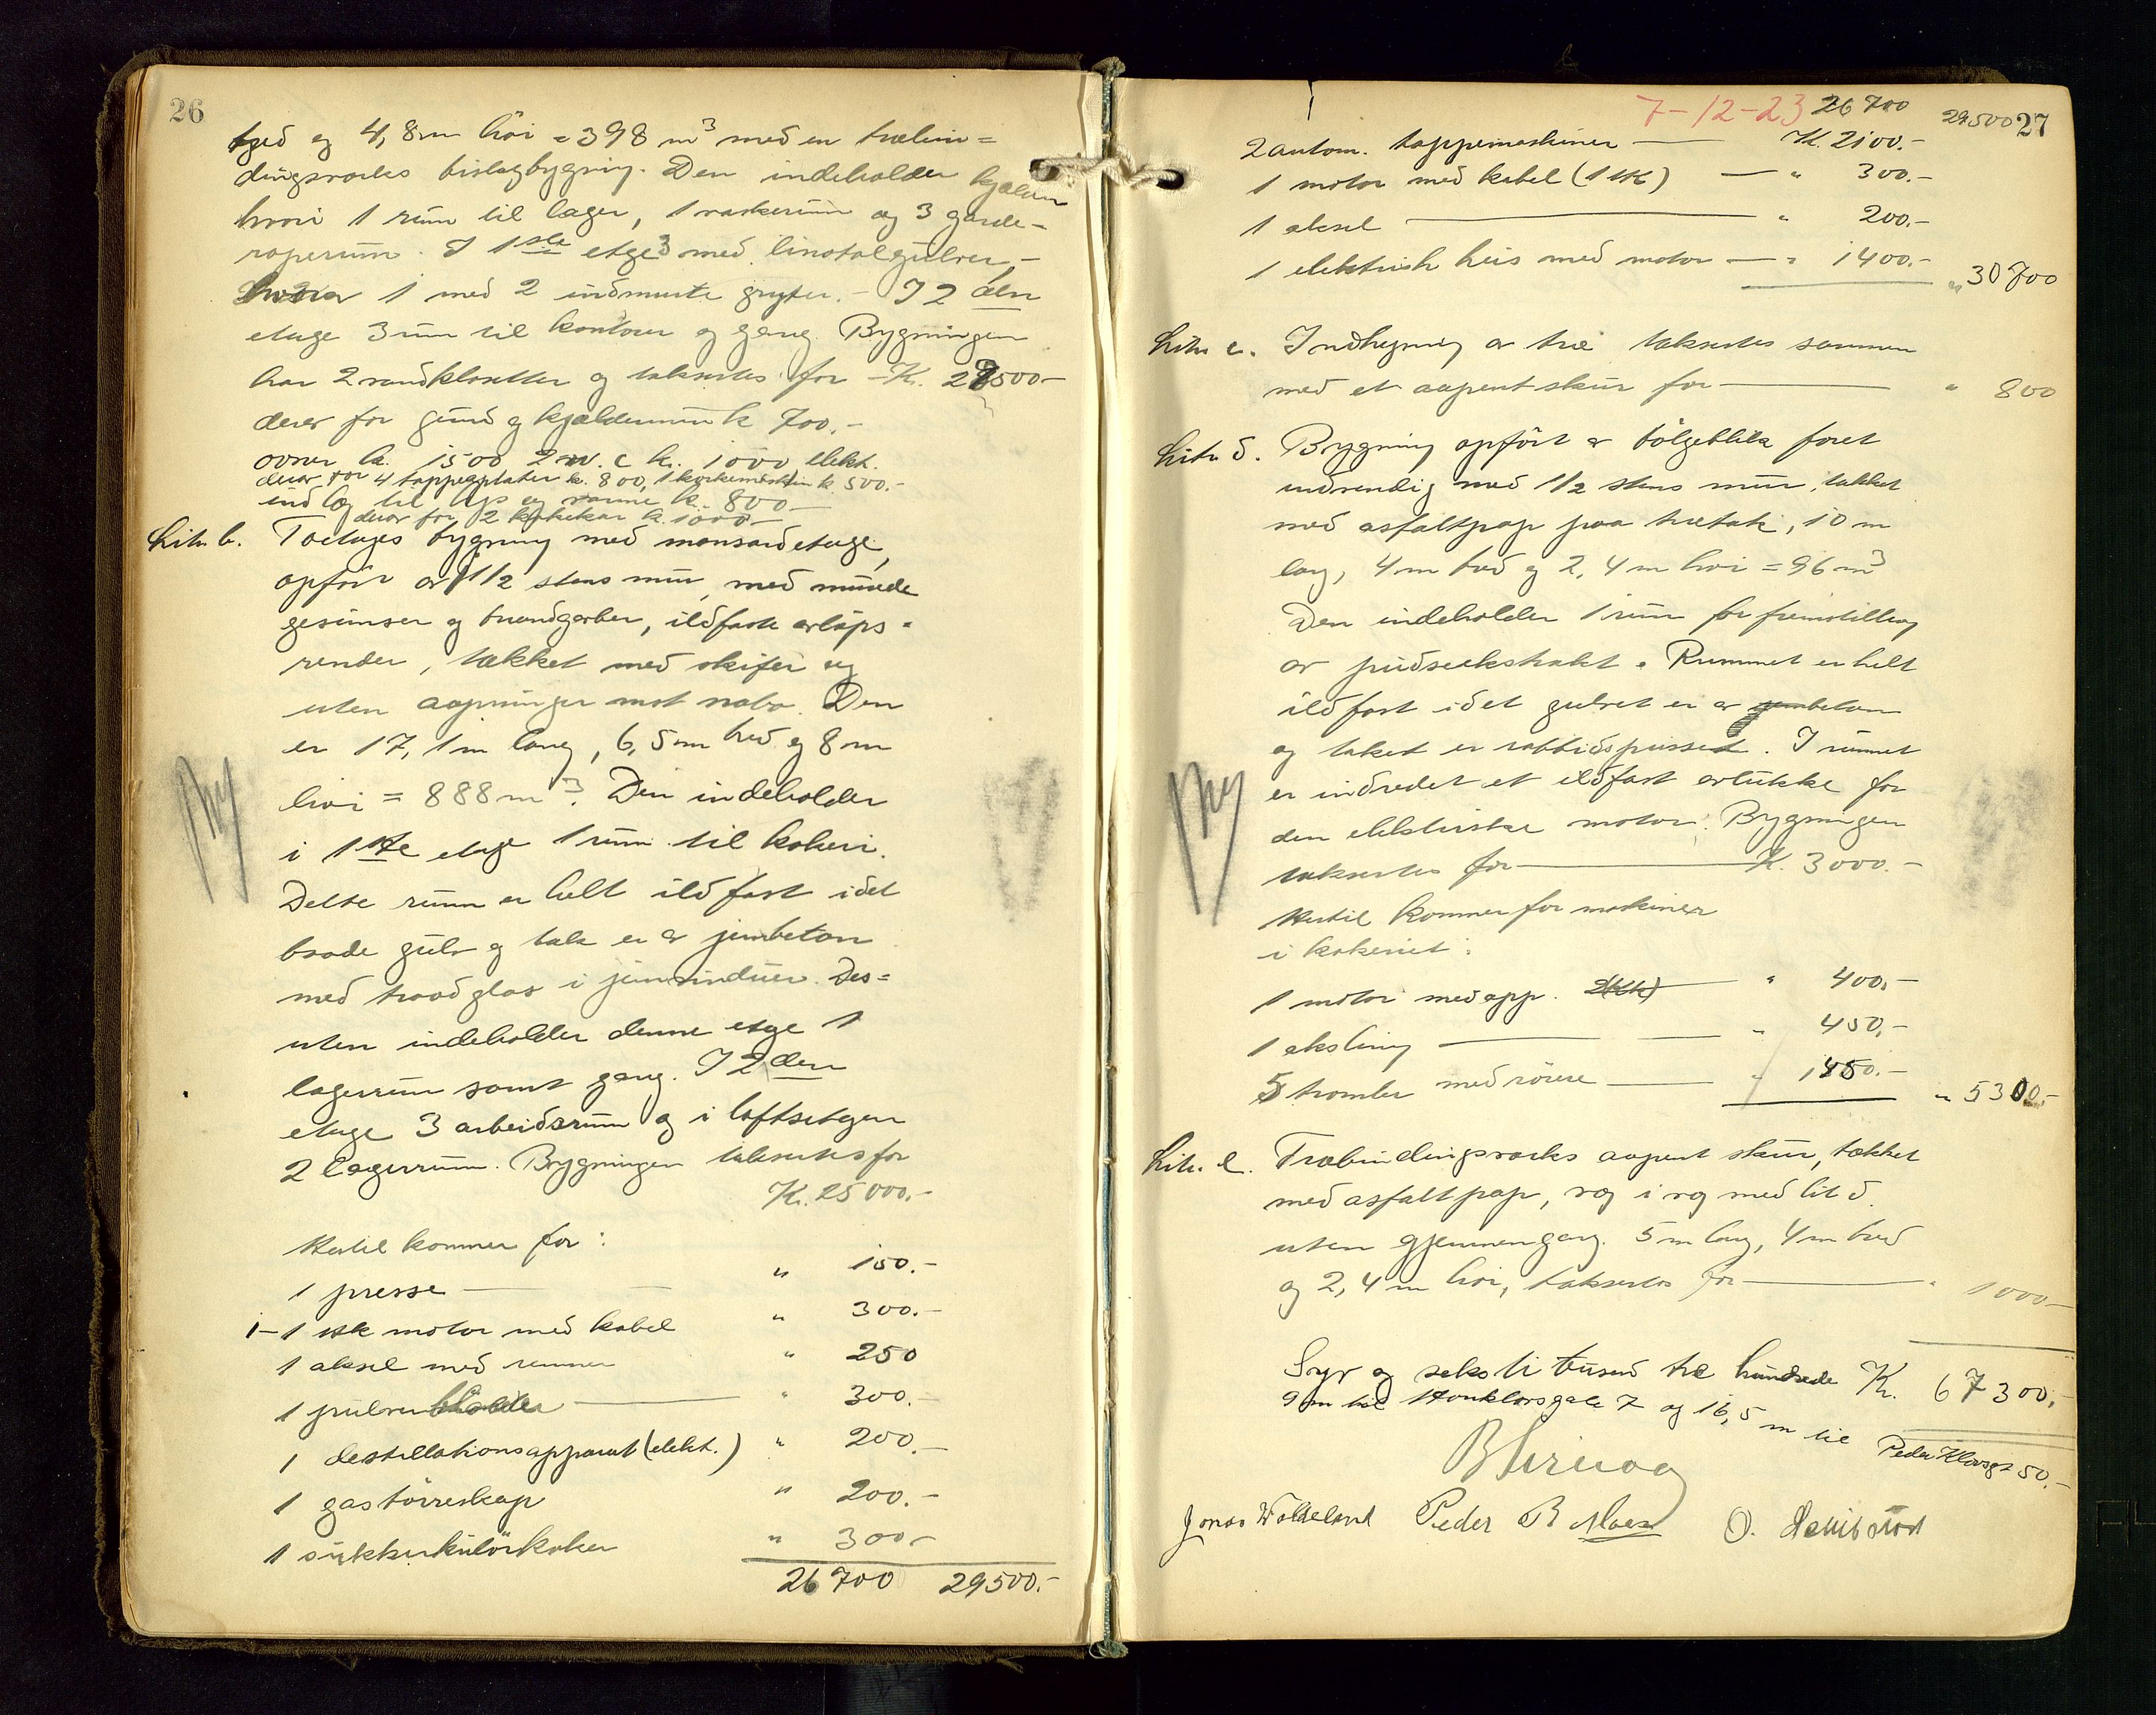 26
bred og 4,8 m høi = 398 m³ med en træbin=
dingsverks bislagbygning. Den indeholder kjælder
hvori 1 rum til lager, 1 vaskerum og 3 garde-
roperum. I 1ste etge 3 med linotolgulver,-
hvorav 1 med 2 indmurte gryter. - I 2 den
etage 3 rum til kontorer og gang. Bygningen
har 2 vandklosetter og taksertes for - Kr. 29500-
derav for grund og kjældermur k 700,-
ovner k. 1500 2 w.c k. 1000 elekt.
derav for 4 tappeaplater k. 800, 1 korkemaskin k. 500.-
indlæg til lys og varme k. 800-
derav for 2 kar k. 1000-
Litr. b. Toetages bygning med mansardetage,
opført av 1 1/2 stens mur, med murede
gesimser og brandgavler, ildfaste avløps-
render, tækket med skifer og
uten aapninger mot nabo. Den
er 17,1 m lang, 6,5 m bred og 8 m
høi = 888 m³. Den indeholder
i 1ste etage 1 rum til kokeri.
Dette rum er helt ildfast idet
baade gulv og tak er av jernbeton
med traadglas i jernvinduer. Des=
uten indeholder denne etge 1
lagerrum samt gang. I 2 den
etage 3 arbeidsrum og i loftsetgen
2 lagerrum. Bygningen taksertes for
Kr. 25000.-
Ny
Hertil kommer for:
1 presse " 150.-
1-1 HK motor med kabel " 300.-
1 aksel med remmer " 250
1 pulver " 300.-
1 destillationsapparat (elekt.) " 200.-
1 gastørreskap " 200.-
1 sukkerkulørkoker " 300.-
26700 29500.-
7-12-23 26700 29500 27
2 autom. tappemaskiner K. 2100.-
1 motor med kabel (1 HK) " 300.-
1 aksel " 200.-
1 elektrisk heis med motor " 1400.- " 30700
Litr. c. Indhegning av træ taksertes sammen
med et aapent skur for " 800
Litr. d. Bygning opført av bølgeblik foret
indvendig med 1/2 stens mur, tækket
med asfaltpap paa trætak, 10 m
lang, 4 m bred og 2,4 m høi = 96 m³
Den indeholder 1 rum for fremstilling
av pudseekstrakt. Rummet er helt
ildfast idet gulvet er av jernbeton
og taket er rabbidspusset. I rummet
er indredet et ildfast avlukke for
den elektriske motor. Bygningen
taksertes for K. 3000.-
Ny
Hertil kommer for maskiner
i kokeriet:
1 motor med app. 2(HK) " 400.-
1 aksling " 450,-
5 tromler med rørere " 1450.- " 5300.-
Litr. e. Træbindingsverks aapent skur, tækket
med asfaltpap, væg i væg med lit d.
uten gjennemgang. 5 m lang, 4 m bred
og 2,4 m høi, taksertes for " 1000-
Syv og seksti tusend tre hundrede Kr. 67300.-
9 m til Hauklovsgate 7 og 16,5 m til Peder Klovsgt 50.-
Jonas Woldeland Peder B O.